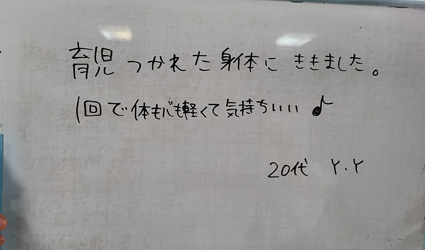 育児 つかれた身体に ききました。
1回で体も心も軽くて気持ちいい♪
20代 Y.Y